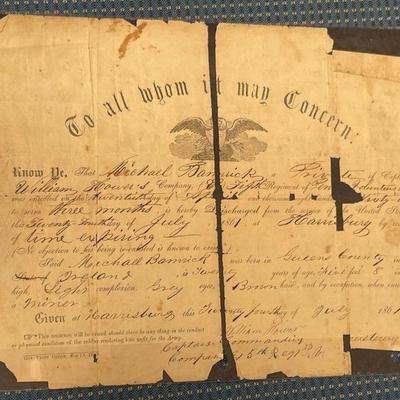 To all whom it may Concern:
Know Ye, That Michael Bannick a Private of Cap
William Hower's Company, Fifth Regiment of Volunteers
was enrolled on the twentieth day of
to serve three months is hereby Discharged from the service of the United States
this Twenty Fourth day of July 1861 at Harrisburg by
of time expiring
(No objection to his being re-enlisted is known to exist
Said Michael Bannick was born in Queens County in
Ireland is Twenty years of age, Five feet 8 in
high, Light complexion, Grey eyes, Brown hair, and by occupation, when en
a miner
Given at Harrisburg this Twenty fourth day of July 1861
This sentence will be erased should there be any thing in the conduct
or physical condition of the soldier rendering him unfit for the Army.
William Hower
Captain Commanding
Company 5th Regt P.V.